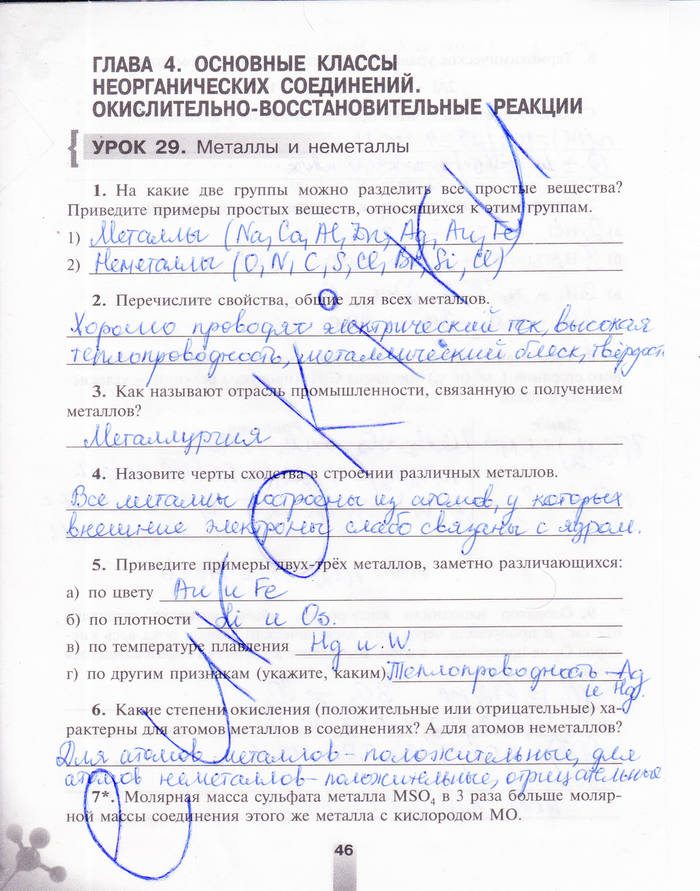 ГЛАВА 4. ОСНОВНЫЕ КЛАССЫ
НЕОРГАНИЧЕСКИХ СОЕДИНЕНИЙ.
ОКИСЛИТЕЛЬНО-ВОССТАНОВИТЕЛЬНЫЕ РЕАКЦИИ
УРОК 29. Металлы и неметаллы
1. На какие две группы можно разделить все простые вещества?
Приведите примеры простых веществ, относящихся к этим группам.
1) Металлы (Na, Ca, Al, Zn, Ag, Au, Fe)
2) Неметаллы (O, N, C, S, Cl, Br, Si, Cl)
2. Перечислите свойства, общие для всех металлов.
Хорошо проводят электрический ток, высокая
теплопроводность, металлический блеск, твёрдост
3. Как называют отрасль промышленности, связанную с получением
металлов?
Металлургия
4. Назовите черты сходства в строении различных металлов.
Все металлы построены из атомов, у которых
внешние электроны слабо связаны с ядром.
5. Приведите примеры двух-трёх металлов, заметно различающихся:
а) по цвету Au и Fe
б) по плотности Li и Os.
в) по температуре плавления Hg и W.
г) по другим признакам (укажите, каким) Теплопроводность – Ag
и Hg.
6. Какие степени окисления (положительные или отрицательные) ха-
рактерны для атомов металлов в соединениях? А для атомов неметаллов?
Для атомов металлов - положительные, для
атомов неметаллов - положительные, отрицательные
7*. Молярная масса сульфата металла MSO₄ в 3 раза больше моляр-
ной массы соединения этого же металла с кислородом MO.
46